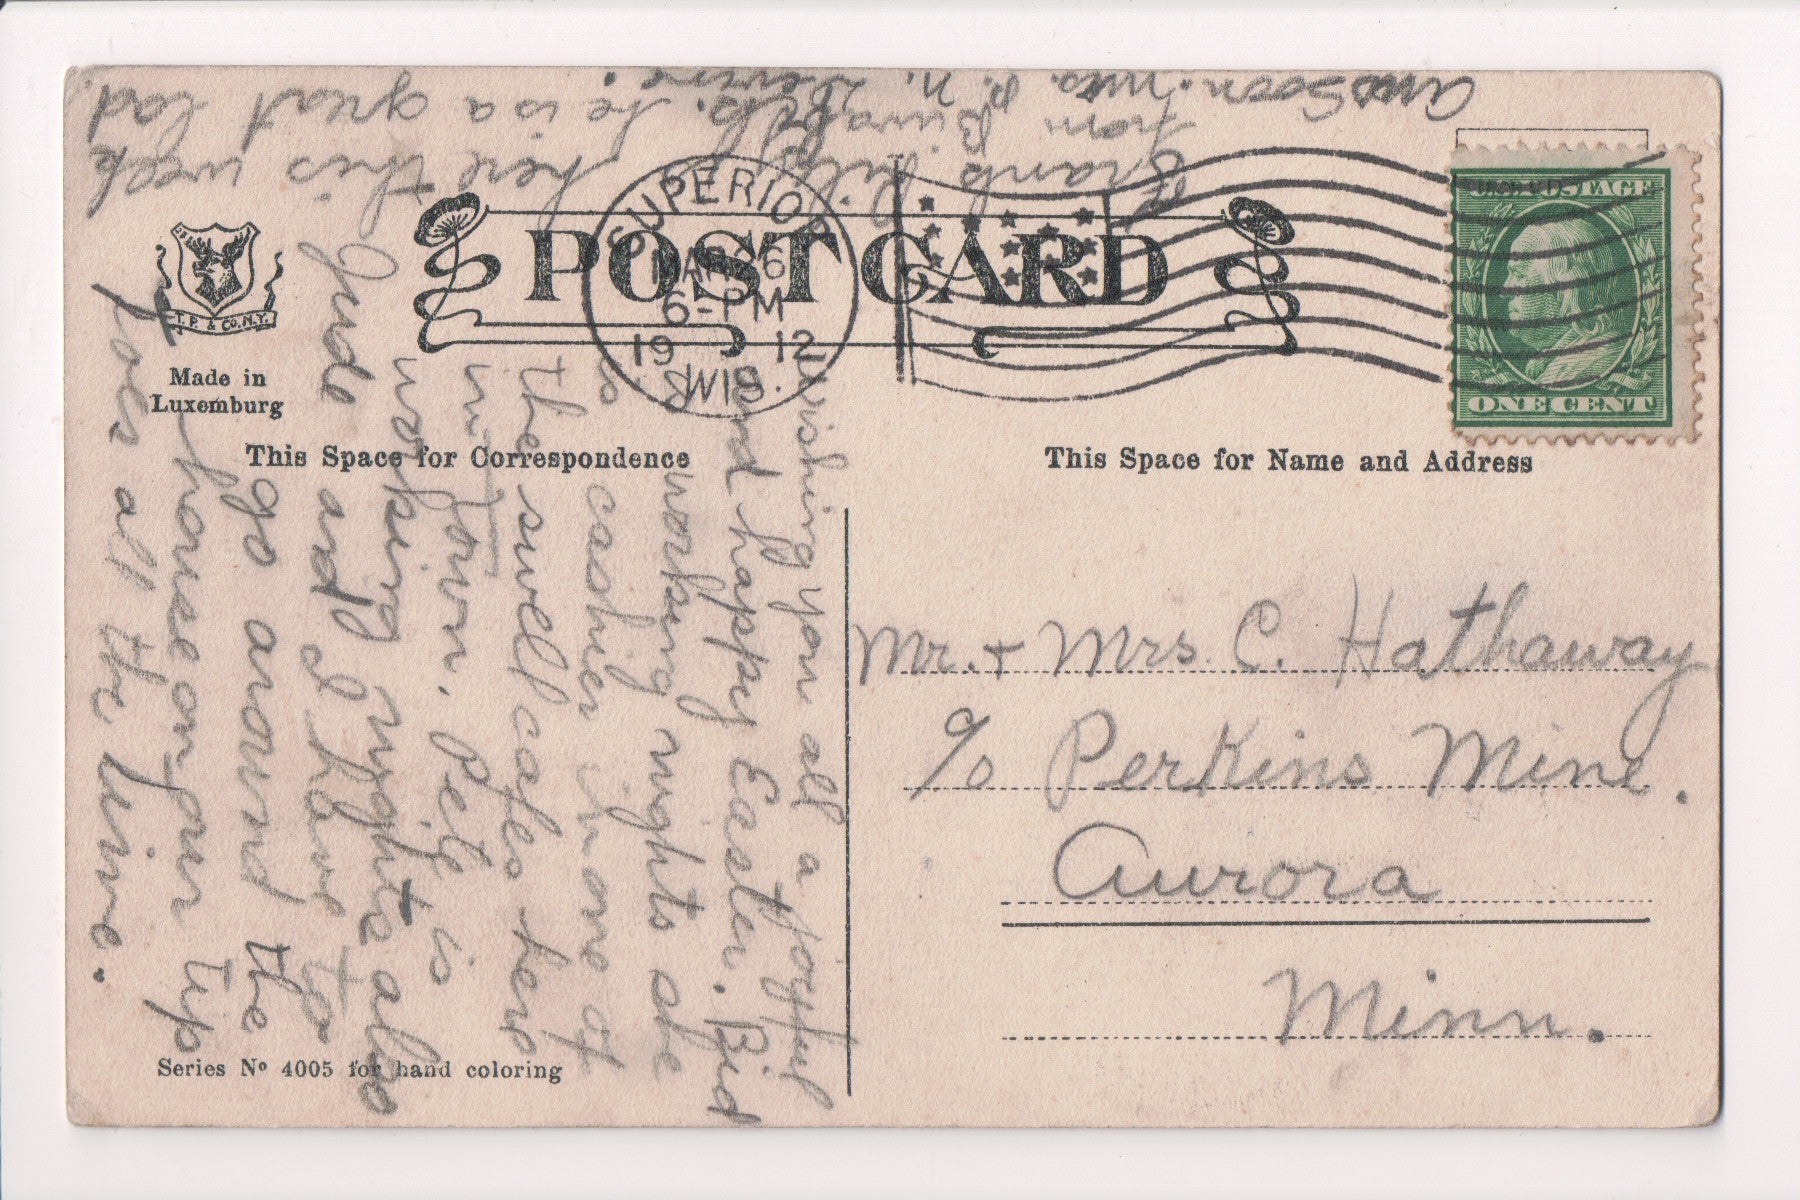 POST CARD
SUPERIOR
MAR 26
6-PM
1912
WIS.
U.S. POSTAGE
ONE CENT
T. P. & CO. N.Y.
Made in
Luxemburg
This Space for Correspondence
This Space for Name and Address
Mr. + Mrs. C. Hathaway
c/o Perkins Mine.
Aurora
Minn.
Wishing you all a joyful
and happy Easter. Bid
working nights she
is cashier in one of
the swell cafes here
in town. Pete is
working nights also
Jude and I have to
go around the
house on our tip
toes all the time.
here this week
he is a great lad.
from
Ans Soon. Mrs. P. N.
Series No 4005 for hand coloring